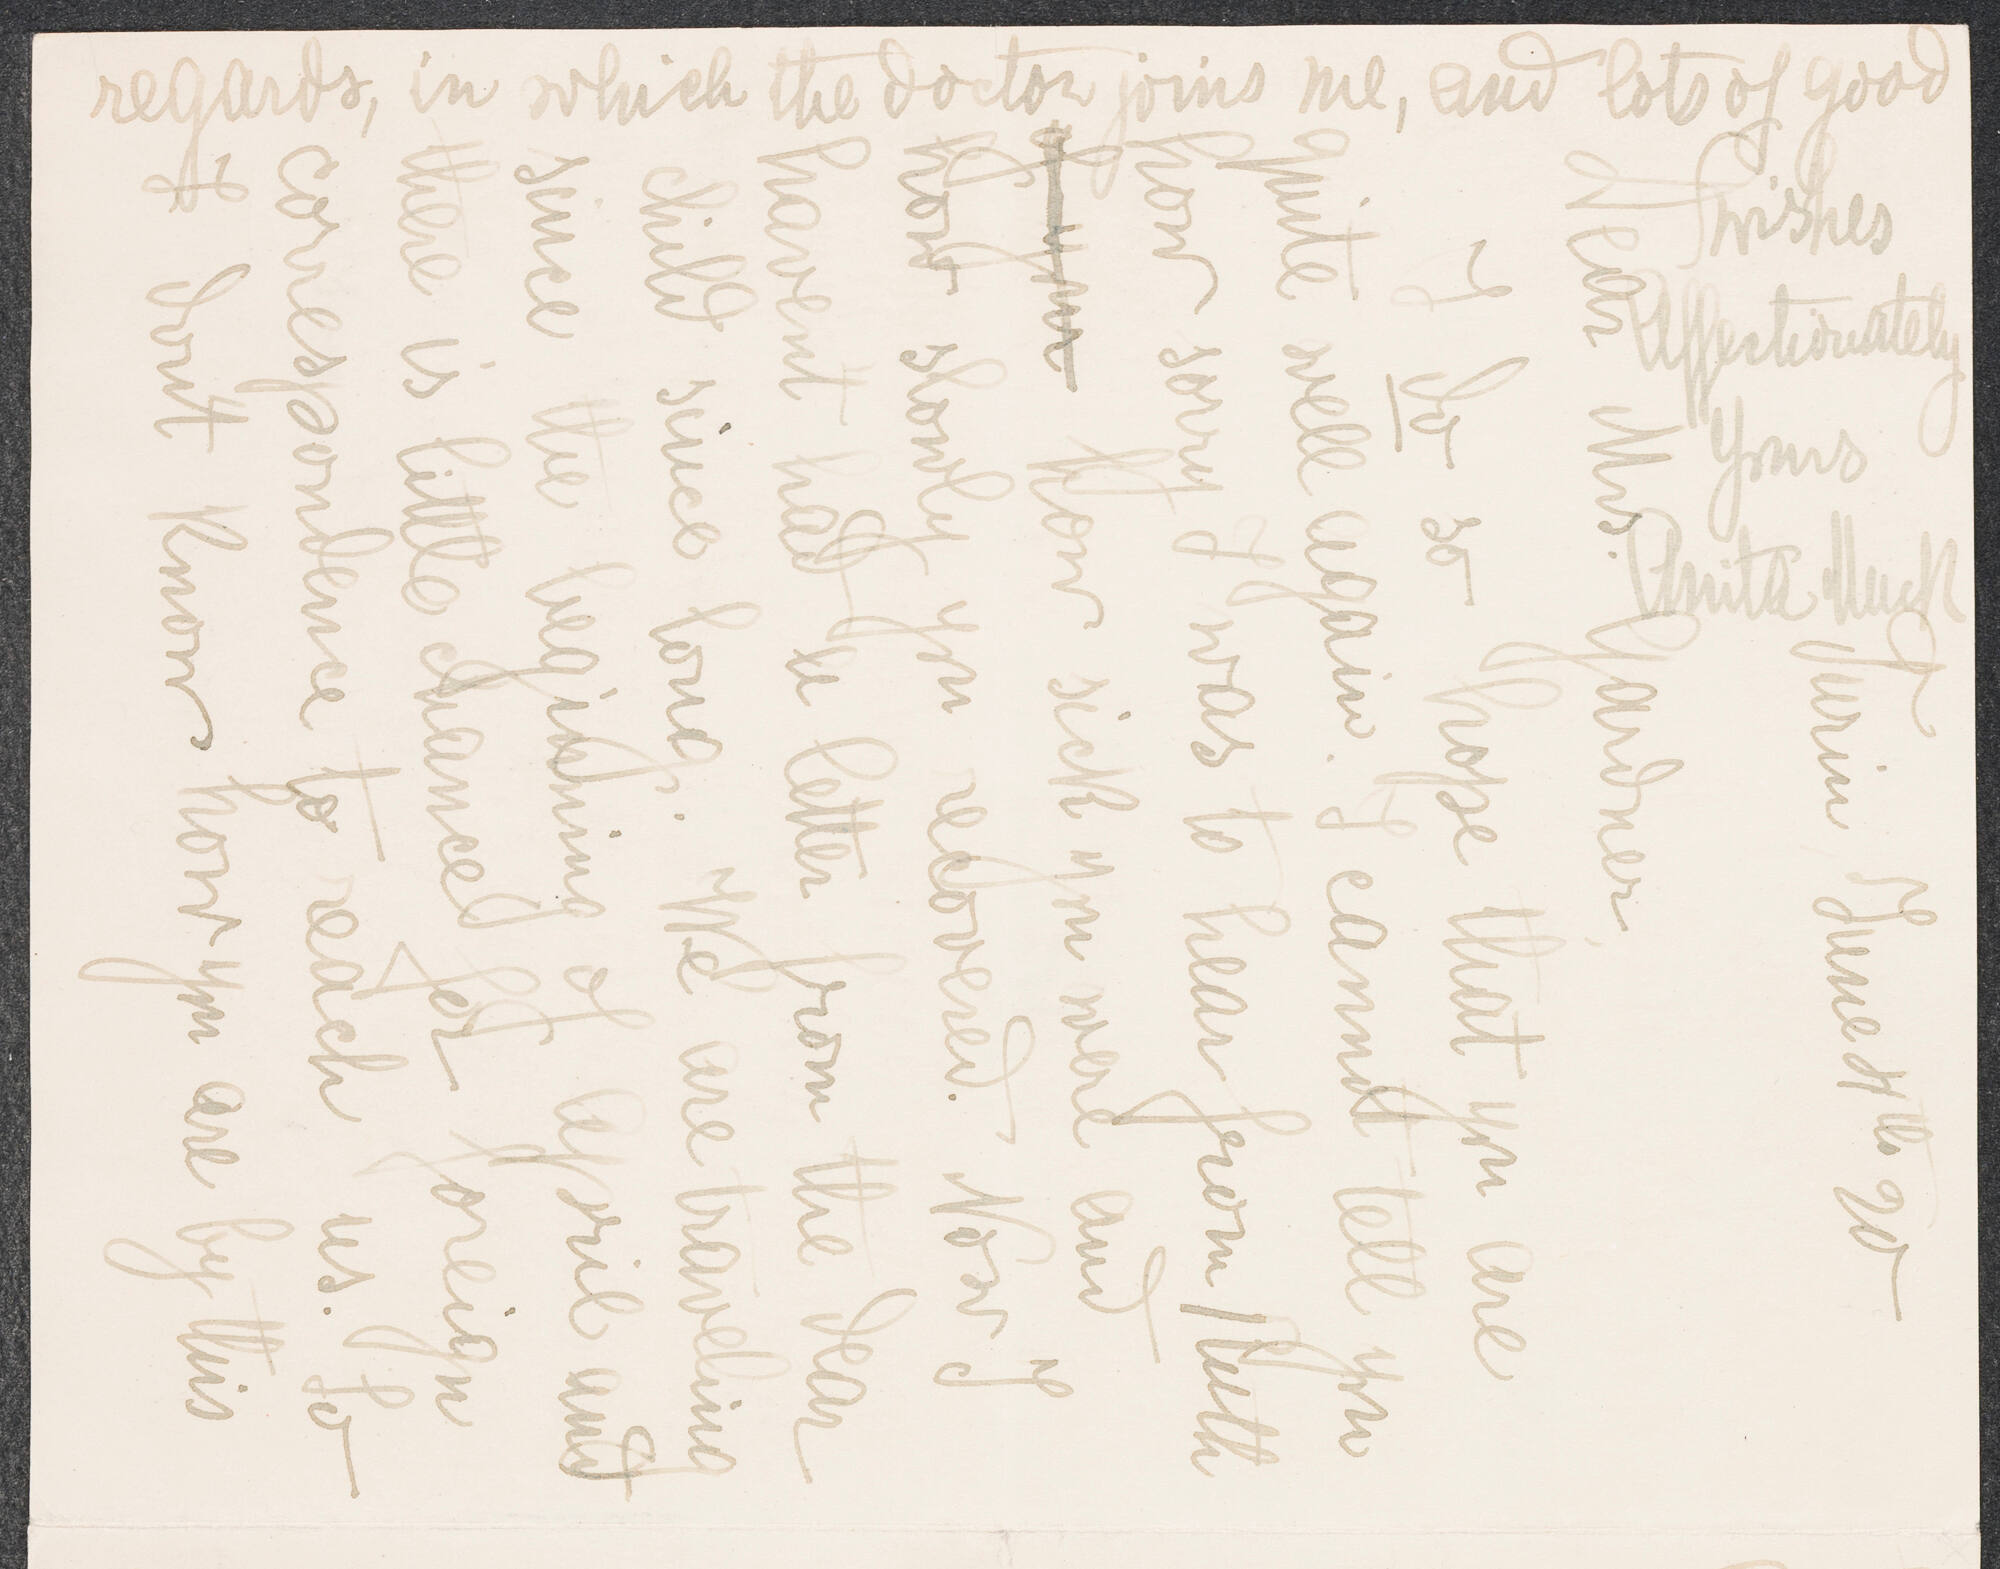 regards, in which the doctor joins me, and lots of good
wishes
Affectionately
Yours
Anita Muck
Turin June 4th 20
Dear Mrs. Gardner,
I do so hope that you are
quite well again. I cannot tell you
how sorry I was to hear from Ruth
how sick you were and
how slowly you recovered. Now I
havent had a letter from the dear
child since long. We are traveling
since the beginning of april and
there is little chance for foreign
correspondence to reach us. So
I dont know how you are by this